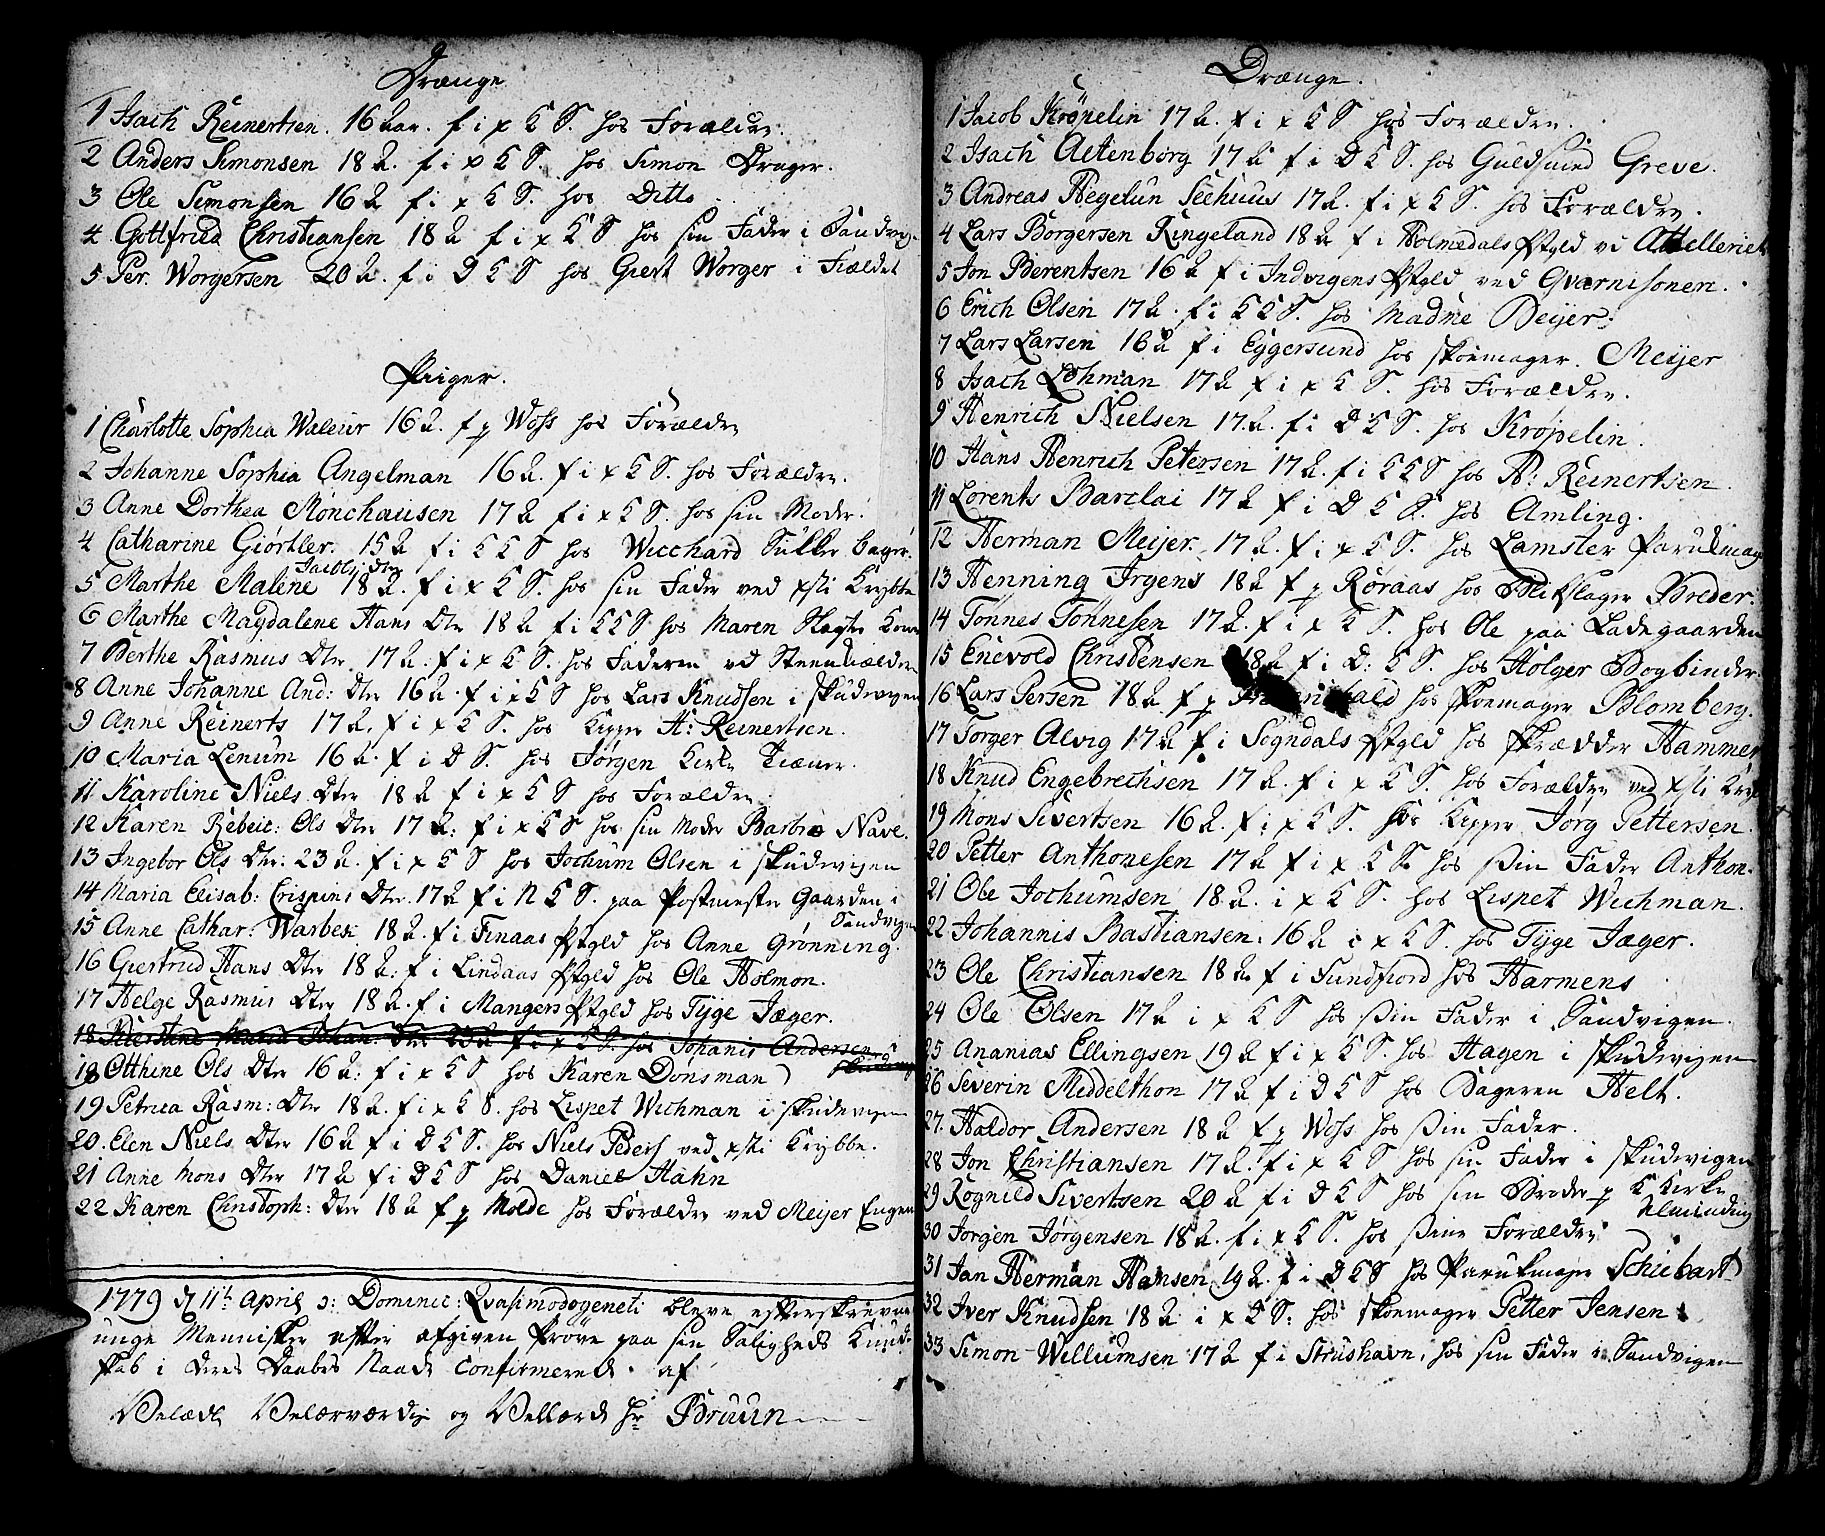 Drænge
1 Isach Reinertsen. 16 aar. f i x K S. hos Forældre.
2 Anders Simonsen 18 a. f i x K S. hos Simon Drager.
3 Ole Simonsen 16 a f i x K S. hos Ditto
4 Gottfried Christiansen 18 a f i x K S hos sin Fader i Sandvig
5 Per. Worgersen 20 a. f i D K S hos Giert Worger i Fieldet
Piiger.
1 Charlotte Sophia Waleur 16 a. f p Woss hos Forældre
2 Johanne Sophia Angelman 16 a. f i x K S. hos Forældre.
3 Anne Dorthea Mönchausen 17 a f i x K S. hos sin Moder.
4 Catharine Giörtler. 15 a f i K K S hos Wicchard Sukker bager.
Jacobs Dtr
5 Marthe Malene 18 a. f i x K S. hos sin Fader ved xsti Krybbe
6 Marthe Magdalene Hans Dtr 18 a f i K K S hos Maren Slagter Kone
7 Berthe Rasmus Dtr 17 a. f i x K S. hos Faderen ved Steenkielder
8 Anne Johanne And: Dtr 16 a. f i x K S hos Lars Knudsen i Skudevigen
9 Anne Reinerts 17 a. f i x K S. hos Kipper H: Reinertsen.
10 Maria Lenium 16 a. f i D S. hos Jørgen Kirke Tiæner.
11 Karoline Niels Dtr 18 a f i x K S hos Forældre
12 Karen Rebeic: Ols Dtr 17 a: f i x K S hos sin Moder Barbra Nave.
13 Ingebor Ols Dtr: 23 a. f i x K S hos Jochum Olsen i Skudevigen
14 Maria Elisab: Crispini Dtr. 17 a f i N K S. paa Postmester Gaarden i
Sandvigen
15 Anne Cathar: Warbek 18 a. f i Finaas Pstgld hos Anne Grønning.
16 Giertrud Hans Dtr 18 a: f i Lindaas Pstgld hos Ole Holmon.
17 Helge Rasmus Dtr 18 a. f i Mangers Pstgld hos Tyge Jæger.
18 Maria Johan: Dtr f i x K S. hos Johanis Andersen
18 Otthine Ols Dtr 16 a: f i x K S hos Karen Donsman
19 Petrica Rasm: Dtr 18 a. f i x K S. hos Lispet Wichman i Skudevigen
20. Elen Niels Dtr 16 a f i D K S. hos Niels Peders ved xsti Krybbe.
21 Anne Mons Dtr 17 a f i D K S hos Daniel Hahn
22 Karen Christoph: Dtr 18 a f p Molde hos Forældre ved Meijer Engen
1779 d 11te April ɔ: Dominic: Qvasimodogeneti bleve efterskrevne
unge Mennisker efter afgiven Prøve paa sin Saligheds Kund-
skab i deres Daabes Naade Confirmerede af
Velædle Velærværdig og Vellærde Hr Bruun

Drænge.
1 Jacob Kröpelin 17 a. f i x K S hos Forældre.
2 Isach Altenborg 17 a f i D K S. hos Guldsmed Greve.
3 Andreas Hegelun Seehuus 17 a. f i x K S. hos Forældre.
4 Lars Borgersen Ringeland 18 a f i Holmedals Pstgld vd Attelleriet
5 Jon Berentsen 16 a f i Indvigens Pstgld ved Gvarnisonen.
6 Erich Olsen 17 a. f i K K S. hos Madme Beijer.
7 Lars Larsen 16 a f i Eggersund hos Skoemager. Meijer
8 Isach Lohman 17 a f i x K S. hos Forældre.
9 Henrich Nielsen 17 a. f i D K S. hos Kröpelin.
10 Hans Henrich Petersen 17 a. f i K K S hos H: Reinertsen.
11 Lorents Barclai 17 a f i D K S. hos Amling.
12 Herman Meijer. 17 a. f i x K S. hos Lamster Parukmag
13 Henning Irgens 18 a f p Røraas hos Blikslager Breder.
14 Tönnes Tönnesen 17 a. f i x K S. hos Ole paa Ladegaarden
15 Enevold Christensen 18 a f i D: K S. hos Holger Bogbinder
16 Lars Persen 18 a f p hos Skoemager Blomberg.
17 Torger Alvig 17 a f i Sogndals Pstgld hos Skrædder Hammer
18 Knud Engebrechsen 17 a. f i x K S. hos Forældre ved xsti Kryb
19 Mons Sivertsen 16 a. f i x K S. hos Kipper Jörg Pettersen.
20 Petter Anthonesen 17 a f i x K S. hos sin Fader Anthon.
21 Ole Jochumsen 18 a. i x K S. hos Lispet Wichman.
22 Johannis Bastiansen: 16 a i x K S. hos Tyge Jæger.
23 Ole Christiansen 18 a f i Sundfiord hos Harmens
24 Ole Olsen 17 a i x K S hos sin Fader i Sandvigen.
25 Ananias Ellingsen 19 a f i x K S. hos Hagen i Skudevigen
26 Severin Middelthon 17 a f i D K S hos Bageren Helt.
27. Haldor Andersen 18 a f p Woss hos sin Fader.
28 Jon Christiansen 17 a. f i x K S hos sin Fader i Skudevigen
29 Rognild Sivertsen 20 a f i D K S hos sin Broder p K Kirke
Alminding
30 Jorgen Jørgensen 18 a. f i x K S. hos sine Forældre
31 Jan Herman Hansen 19 a. f i D K S hos Parukmager Schiebart
32 Iver Knudsen 18 a i x K S: hos Skoemager Petter Jensen
33 Simon Willumsen 17 a f i Strushavn, hos sin Fader i Sandvigen